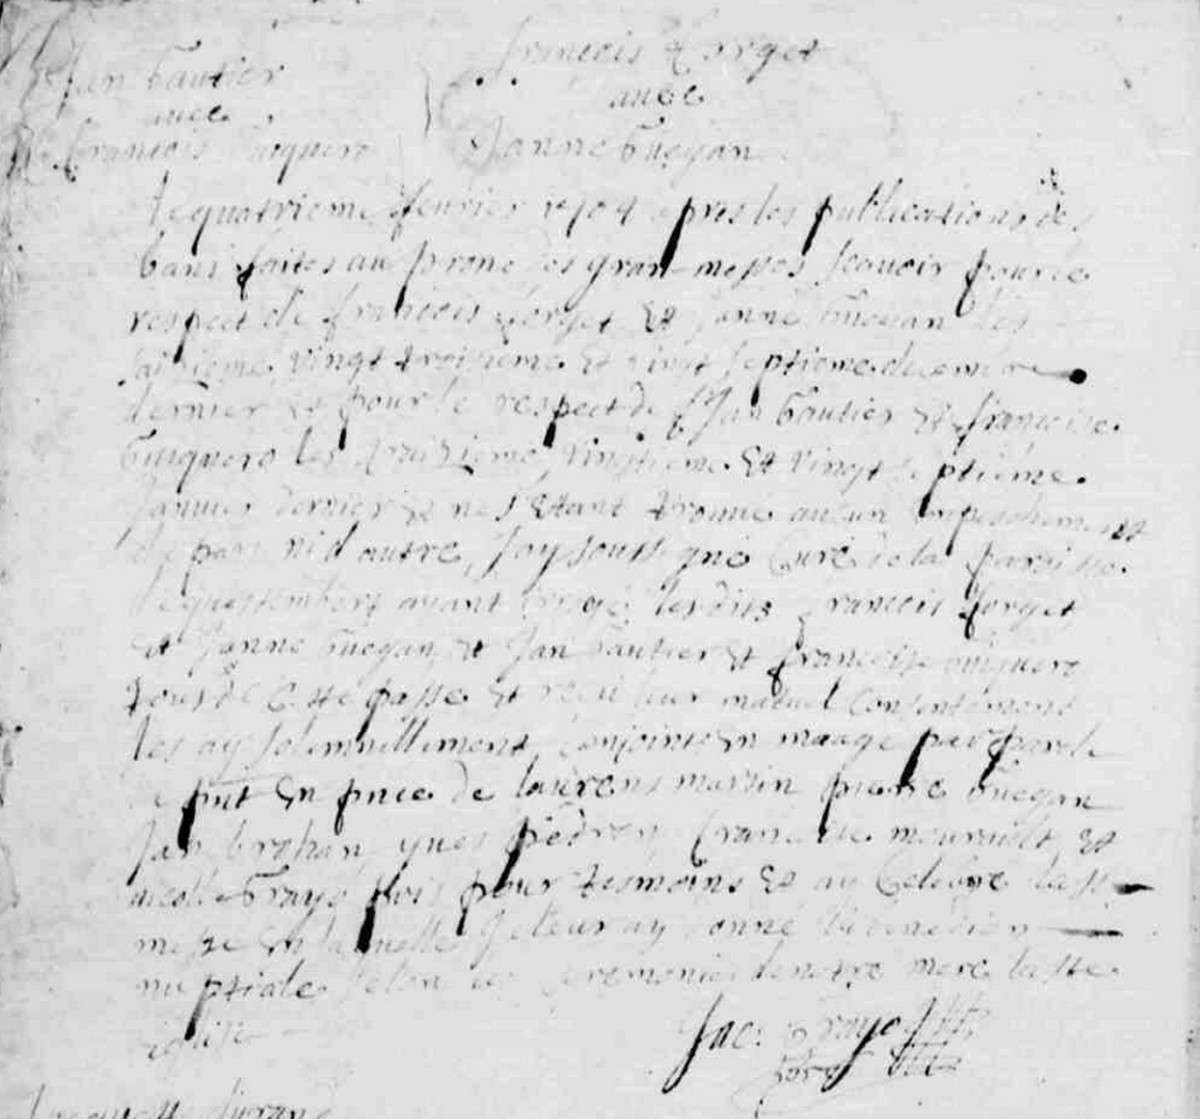 Jan Gautier
avec
Francois Guiquero
francois Forget
avec
Janne Guegan
le quatrieme feurier 1704 apres les publications des
bans faites au prone des grand messes scauoir pour le
respect de francois forget et Janne Guegan les
saizieme vingt troisieme et vingt septieme decembre
dernier et pour le respect de Jan Gautier et francoise
Guiquero les traizieme vingtieme et vingt septieme
Januier dernier et ne s'etant trouue aucun empeschement
de part ni d'autre, Jay soussigné Curé de la paroisse
de questembert ayant lesdits francois forget
et Janne Guegan et Jan Gautier et francoise Guiquero
tous de cette passe et reçu leur mutuel consentement
les ay solemnellement conjoints en maage par parole
de pnt en pnce de laurens martin pierre Guegan
Jan brohan yues piedron francoise et
nicolle Grayo pour tesmoins et ay Celebre la ste
messe en laquelle Je leur ay donné la benedion
nuptiale selon les ceremonies de notre mere la ste
eglise
Jac: Grayo